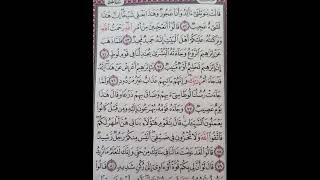 قَالَتْ يَٰوَيْلَتَىٰٓ ءَأَلِدُ وَأَنَا۠ عَجُوزٌ وَهَٰذَا بَعْلِى شَيْخًا إِنَّ هَٰذَا
لَشَىْءٌ عَجِيبٌ ٧٢ قَالُوٓا۟ أَتَعْجَبِينَ مِنْ أَمْرِ ٱللَّهِ رَحْمَتُ ٱللَّهِ
وَبَرَكَٰتُهُۥ عَلَيْكُمْ أَهْلَ ٱلْبَيْتِ إِنَّهُۥ حَمِيدٌ مَّجِيدٌ ٧٣ فَلَمَّا ذَهَبَ
عَنْ إِبْرَٰهِيمَ ٱلرَّوْعُ وَجَآءَتْهُ ٱلْبُشْرَىٰ يُجَٰدِلُنَا فِى قَوْمِ لُوطٍ ٧٤
إِنَّ إِبْرَٰهِيمَ لَحَلِيمٌ أَوَّٰهٌ مُّنِيبٌ ٧٥ يَٰٓإِبْرَٰهِيمُ أَعْرِضْ عَنْ هَٰذَآ إِنَّهُۥ
قَدْ جَآءَ أَمْرُ رَبِّكَ وَإِنَّهُمْ ءَاتِيهِمْ عَذَابٌ غَيْرُ مَرْدُودٍ ٧٦ وَلَمَّا
جَآءَتْ رُسُلُنَا لُوطًا سِىٓءَ بِهِمْ وَضَاقَ بِهِمْ ذَرْعًا وَقَالَ هَٰذَا
يَوْمٌ عَصِيبٌ ٧٧ وَجَآءَهُۥ قَوْمُهُۥ يُهْرَعُونَ إِلَيْهِ وَمِن قَبْلُ كَانُوا۟
يَعْمَلُونَ ٱلسَّيِّـَٔاتِ قَالَ يَٰقَوْمِ هَٰٓؤُلَآءِ بَنَاتِى هُنَّ أَطْهَرُ لَكُمْ
فَٱتَّقُوا۟ ٱللَّهَ وَلَا تُخْزُونِ فِى ضَيْفِىٓ أَلَيْسَ مِنكُمْ رَجُلٌ رَّشِيدٌ
٧٨ قَالُوا۟ لَقَدْ عَلِمْتَ مَا لَنَا فِى بَنَاتِكَ مِنْ حَقٍّ وَإِنَّكَ لَتَعْلَمُ مَا نُرِيدُ
٧٩ قَالَ لَوْ أَنَّ لِى بِكُمْ قُوَّةً أَوْ ءَاوِىٓ إِلَىٰ رُكْنٍ شَدِيدٍ ٨٠ قَالُوا۟